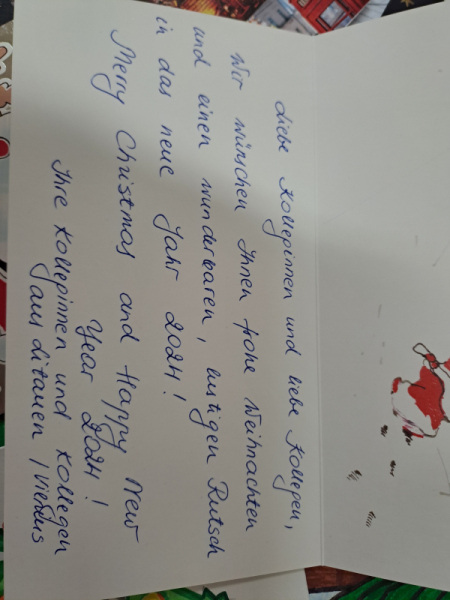 Liebe Kolleginnen und liebe Kollegen,
Wir wünschen Ihnen frohe Weihnachten
und einen wunderbaren, lustigen Rutsch
in das neue Jahr 2024!
Merry Christmas and Happy New
Year 2024!
Ihre Kolleginnen und Kollegen
aus Litauen